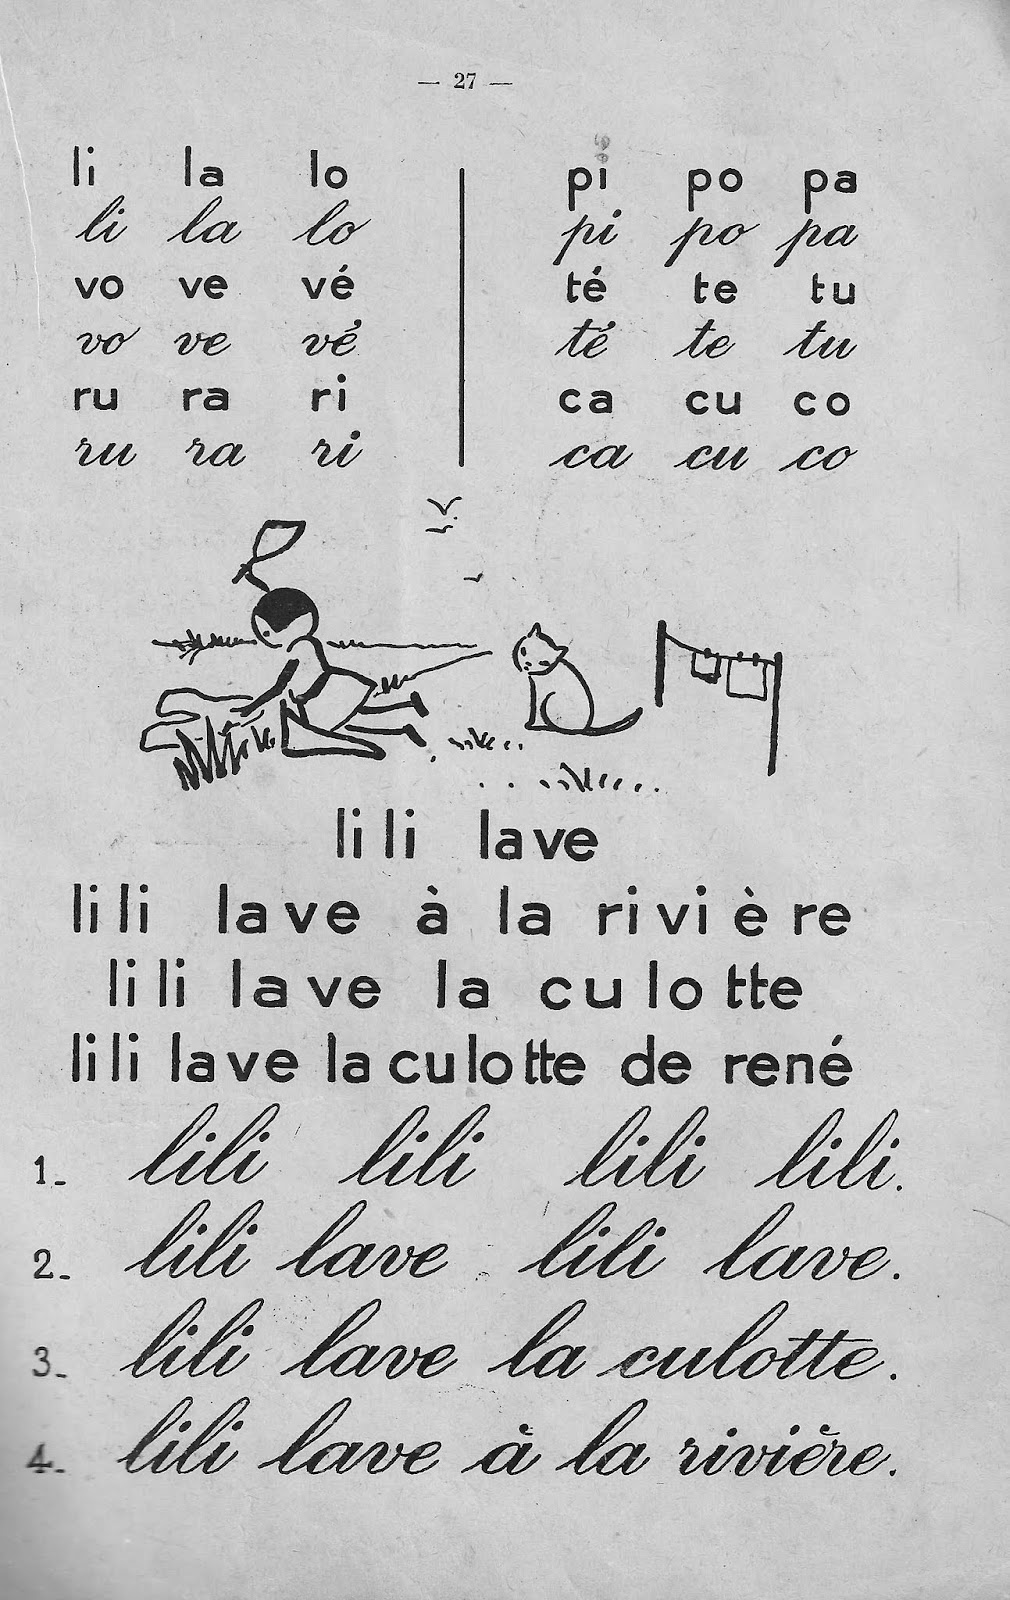 — 27 —
li la lo pi po pa
li la lo pi po pa
vo ve vé té te tu
vo ve vé té te tu
ru ra ri ca cu co
ru ra ri ca cu co
lili lave
lili lave à la rivière
lili lave la culotte
lili lave la culotte de rené
1_ lili lili lili lili.
2_ lili lave lili lave.
3_ lili lave la culotte.
4_ lili lave à la rivière.